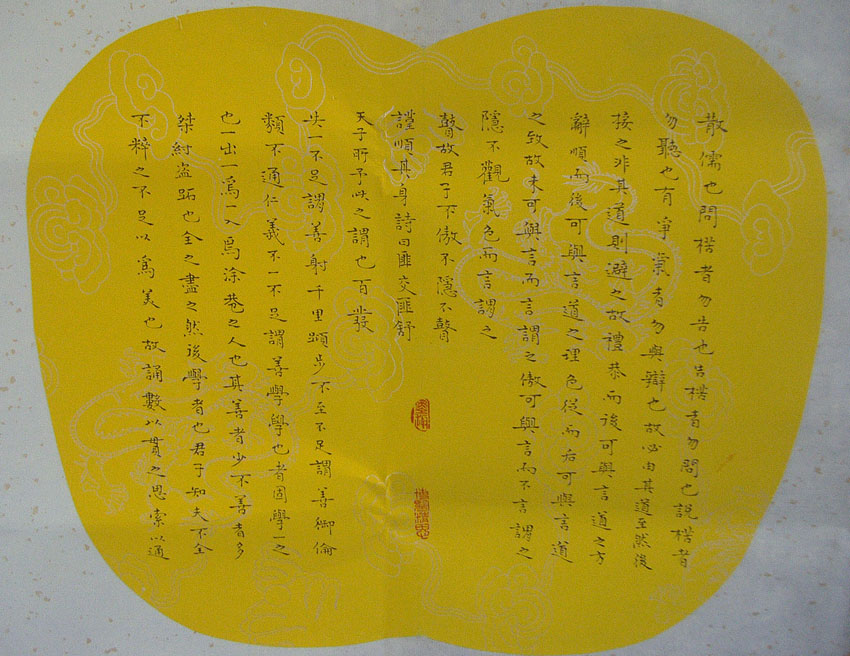 散儒也問楛者勿告也告楛者勿問也說楛者
勿聽也有爭氣者勿與辯也故必由其道至然後
接之非其道則避之故禮恭而後可與言道之方
辭順而後可與言道之理色從而后可與言道
之致故未可與言而言謂之傲可與言而不言謂之
隱不觀氣色而言謂之
瞽故君子不傲不隱不瞽
謹順其身詩曰匪交匪舒
天子所予此之謂也百發
失一不足謂善射千里蹞步不至不足謂善御倫
類不通仁義不一不足謂善學學也者固學一之
也一出一為一入為涂巷之人也其善者少不善者多
桀紂盜跖也全之盡之然後學者也君子知夫不全
不粹之不足以為美也故誦數以貫之思索以通